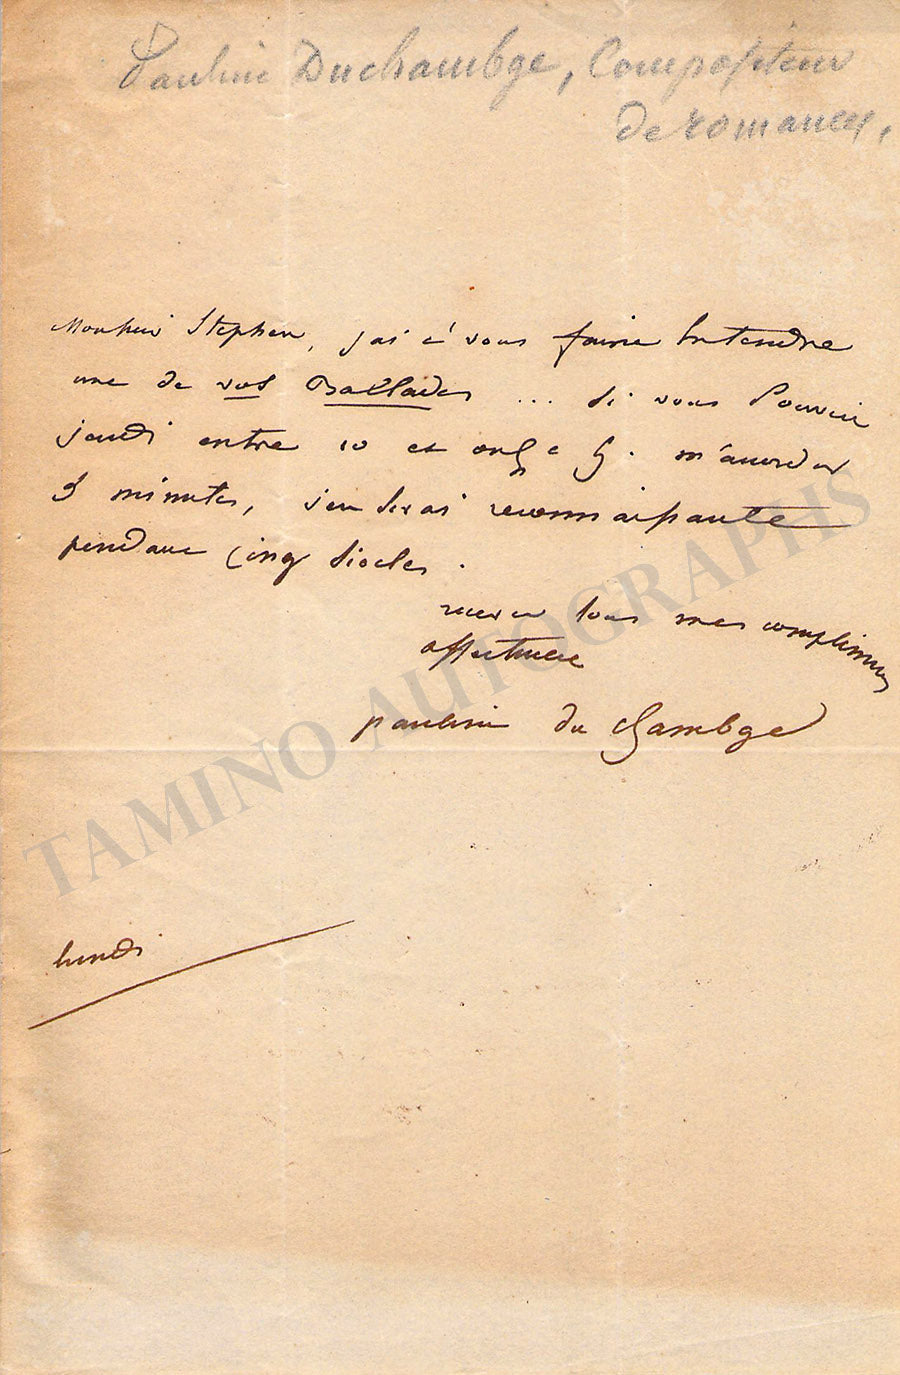 Pauline Duchambge, Compositeur
de romances,
Monsieur Stephen, j'ai à vous faire entendre
une de vos Ballades ... si vous Pouvié
jeudi entre 10 et onze h. m'accorder
5 minutes, j'en serai reconnaissante
pendant cinq siècles.
recever tous mes complimens
affectueux
pauline du chambge
lundi
TAMINO AUTOGRAPHS